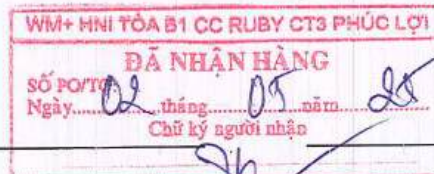 WM+ HNI TÒA B1 CC RUBY CT3 PHÚC LỢI
ĐÃ NHẬN HÀNG
SỐ PO/TO
Ngày 02 tháng 05 năm 25
Chữ ký người nhận